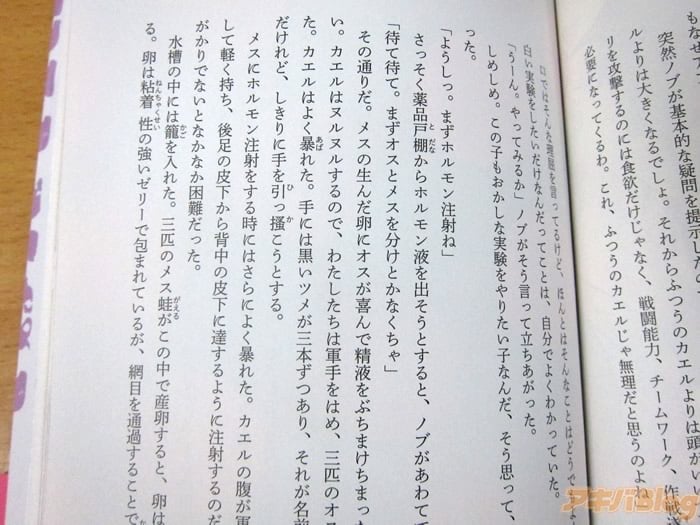 もな
突然ノブが基本的な疑問を提示
ルよりは大きくなるでしょ。それからふつうのカエルよりは頭がいい
リを攻撃するのには食欲だけじゃなく、戦闘能力、チームワーク、作戦
必要になってくるわ。これ、ふつうのカエルじゃ無理だと思うのよね
口ではそんな理屈を言ってるけど、ほんとはそんなことはどうで
白い実験をしたいだけなんだってことは、自分でよくわかっていた。
「うーん。やってみるか」ノブがそう言って立ちあがった。
しめしめ。この子もおかしな実験をやりたい子なんだ、そう思って、
った。
「ようしっ。まずホルモン注射ね」
さっそく薬品戸棚からホルモン液を出そうとすると、ノブがあわてて
「待て待て。まずオスとメスを分けとかなくちゃ」
その通りだ。メスの生んだ卵にオスが喜んで精液をぶちまけちまった
い。カエルはヌルヌルするので、わたしたちは軍手をはめ、三匹のオス
た。カエルはよく暴れた。手には黒いツメが三本ずつあり、それが名前
だけれど、しきりに手を引っ掻こうとする。
メスにホルモン注射をする時にはさらによく暴れた。カエルの腹が軍
して軽く持ち、後足の皮下から背中の皮下に達するように注射するのだ
がかりでないとなかなか困難だった。
水槽の中には籠を入れた。三匹のメス蛙がこの中で産卵すると、卵は
る。卵は粘着性の強いゼリーで包まれているが、網目を通過することで
アキバBlog